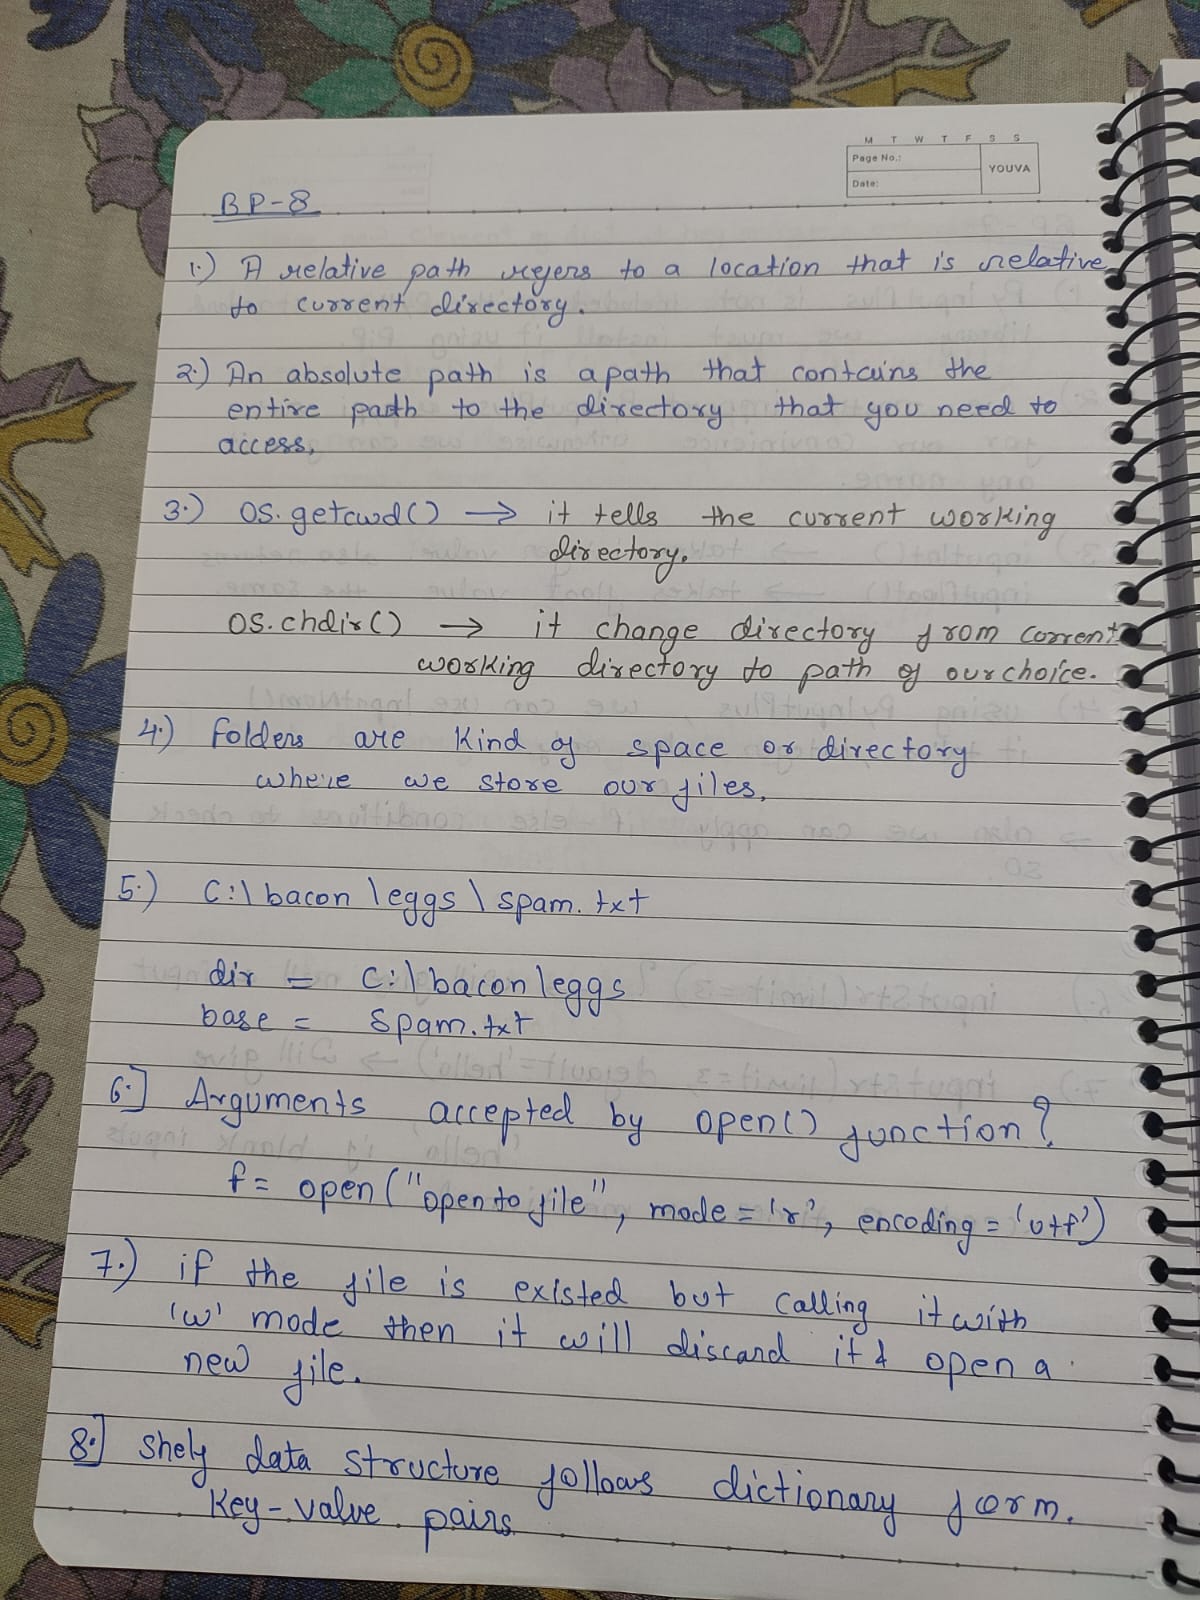 M T W T F S S
Page No.:
YOUVA
Date:
BP-8
1.) A relative path refers to a location that is relative
to current directory.
2.) An absolute path is a path that contains the
entire path to the directory that you need to
access,
3.) os.getcwd() → it tells the current working
directory.
os.chdir() → it change directory from current
working directory to path of our choice.
4.) Folders are kind of space or directory
where we store our files,
5.) C:\bacon\eggs\spam.txt
dir = C:\bacon\eggs
base = spam.txt
6.] Arguments accepted by open() function?
f= open("open to file", mode='r', encoding='utf')
7.) if the file is existed but calling it with
'w' mode then it will discard it & open a
new file.
8.] Shelf data structure follows dictionary form.
Key-value pairs